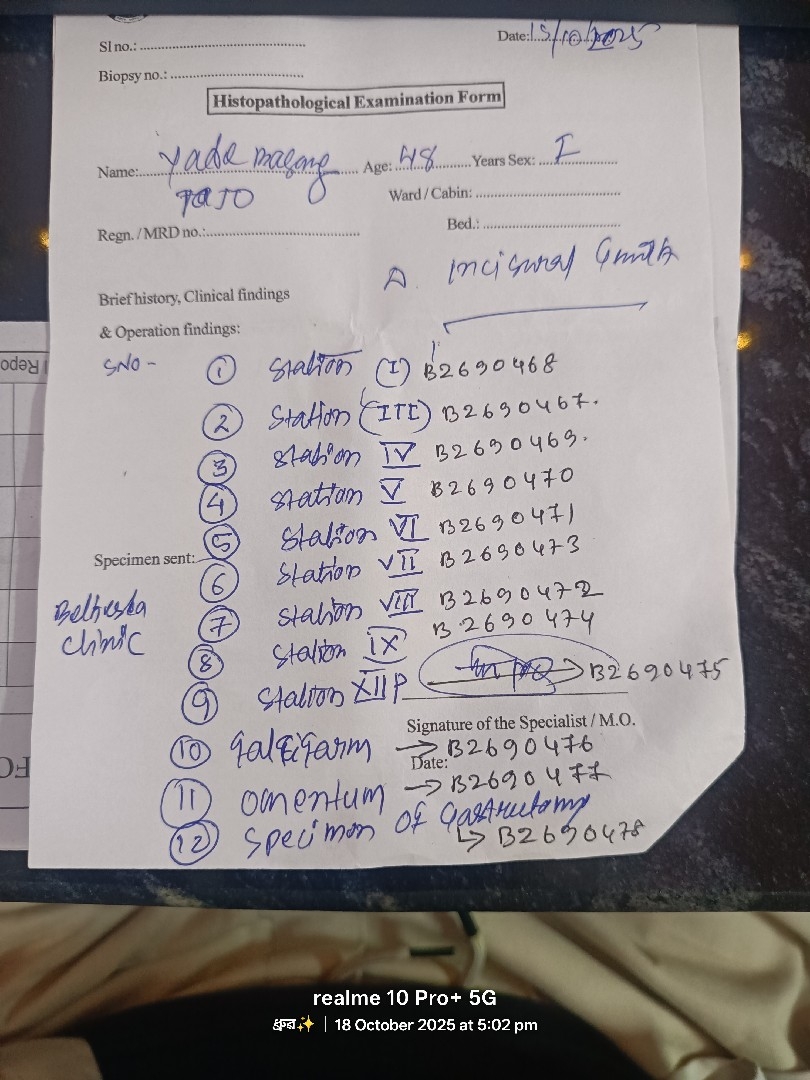 Sl no.: ..............................
Date: 15/10/2025
Biopsy no.: ..............................
Histopathological Examination Form
Name: Yade
Age: 48 Years Sex: F
TAJO
Ward / Cabin: ..............................
Regn. / MRD no.: ..............................
Bed.: ..............................
A.
Brief history, Clinical findings
& Operation findings:
SNO -
① Station (I) B2690468
② Station (III) B2690467.
③ Station IV B2690469.
④ Station V B2690470
⑤ Station VI B2690471
Specimen sent:
⑥ Station VII B2690473
⑦ Station VIII B2690472
clinic
⑧ Station IX B2690474
⑨ Station XII P → B2690475
Signature of the Specialist / M.O.
⑩ → B2690476
Date:
⑪ omentum → B2690477
⑫ Specimon OF
↳ B2690478
Repo
realme 10 Pro+ 5G
18 October 2025 at 5:02 pm